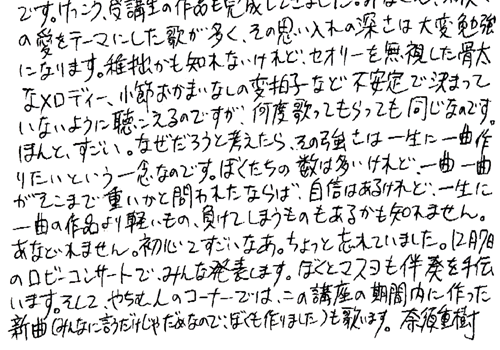 です。けっこう、受講生の作品も完成してきました。みなさん、
の愛をテーマにした歌が多く、その思い入れの深さは大変勉強
になります。稚拙かも知れないけれど、セオリーを無視した骨太
なメロディー、小節おかまいなしの変拍子など不安定で決まって
いないように聴こえるのですが、何度歌ってもらっても同じなのです。
ほんと、すごい。なぜだろうと考えたら、その強さは一生に一曲作
りたいという一念なのです。ぼくたちの数は多いけれど、一曲一曲
がそこまで重いかと問われたならば、自信はあるけれど、一生に
一曲の作品より軽いもの、負けてしまうものもあるかも知れません。
あなどれません。初心てすごいなあ。ちょっと忘れていました。12月7日
のロビーコンサートで、みんな発表します。ぼくとマスヨも伴奏を手伝
います。そして、やちむ2人のコーナーでは、この講座の期間内に作った
新曲(みんなに言うだけじゃだめなので、ぼくも作りました)も歌います。奈須重樹